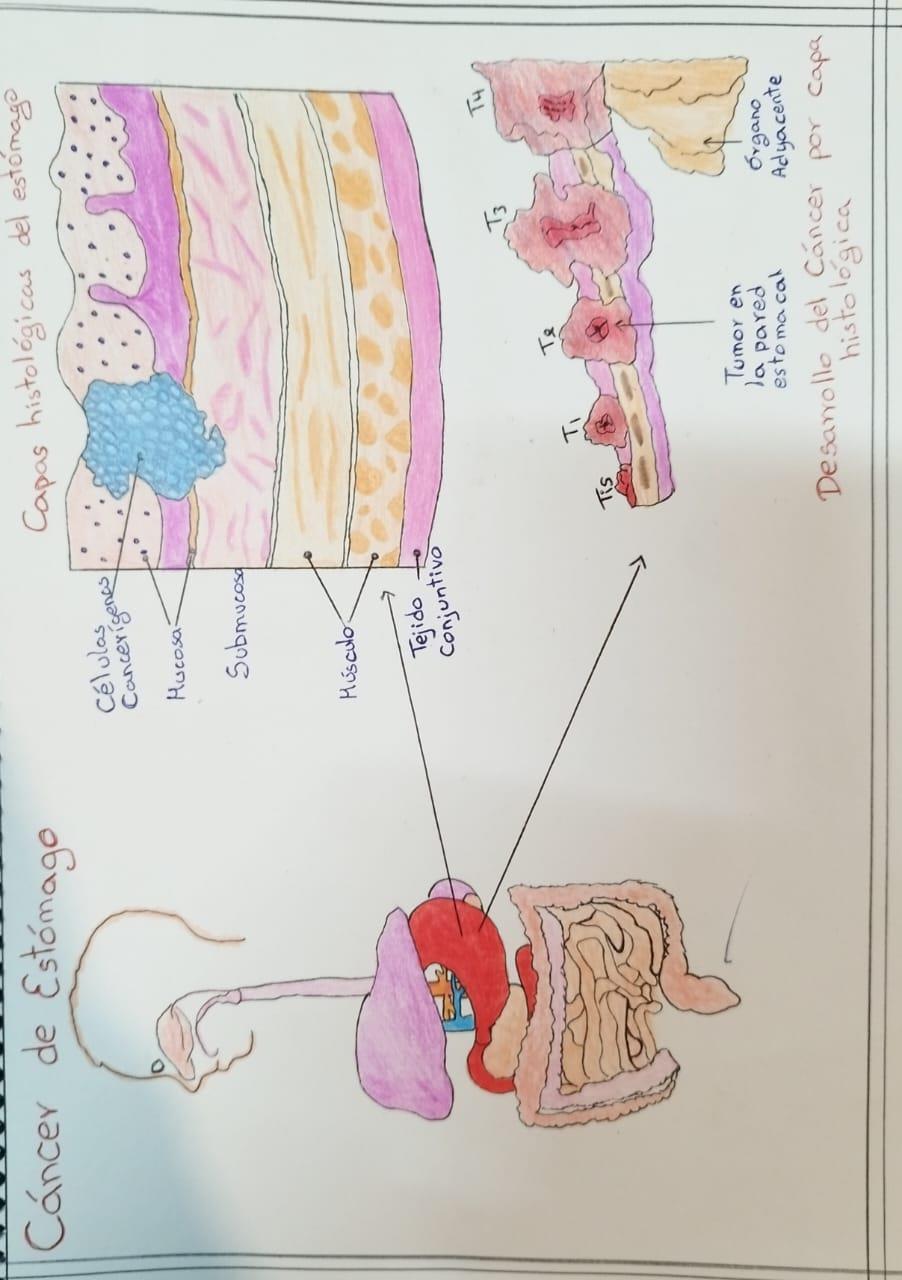 Cáncer de Estómago
Capas histológicas del estómago
Células
Cancerígenes
Mucosa
Submucosa
Músculo
Tejido
Conjuntivo
Tis
T1
T2
T3
T4
Tumor en
la pared
estomacal
Órgano
Adyacente
Desarrollo del Cáncer por capa
histológica